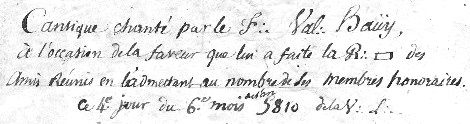 Cantique chanté par le F∴ Val∴ Baüy,
à l'occasion de la faveur que lui a faite la R∴ □ des
Amis Réunis en l'admettant au nombre de ses membres honoraires.
Ce 4.e jour du 6.e mois 5810 de la V∴ L∴